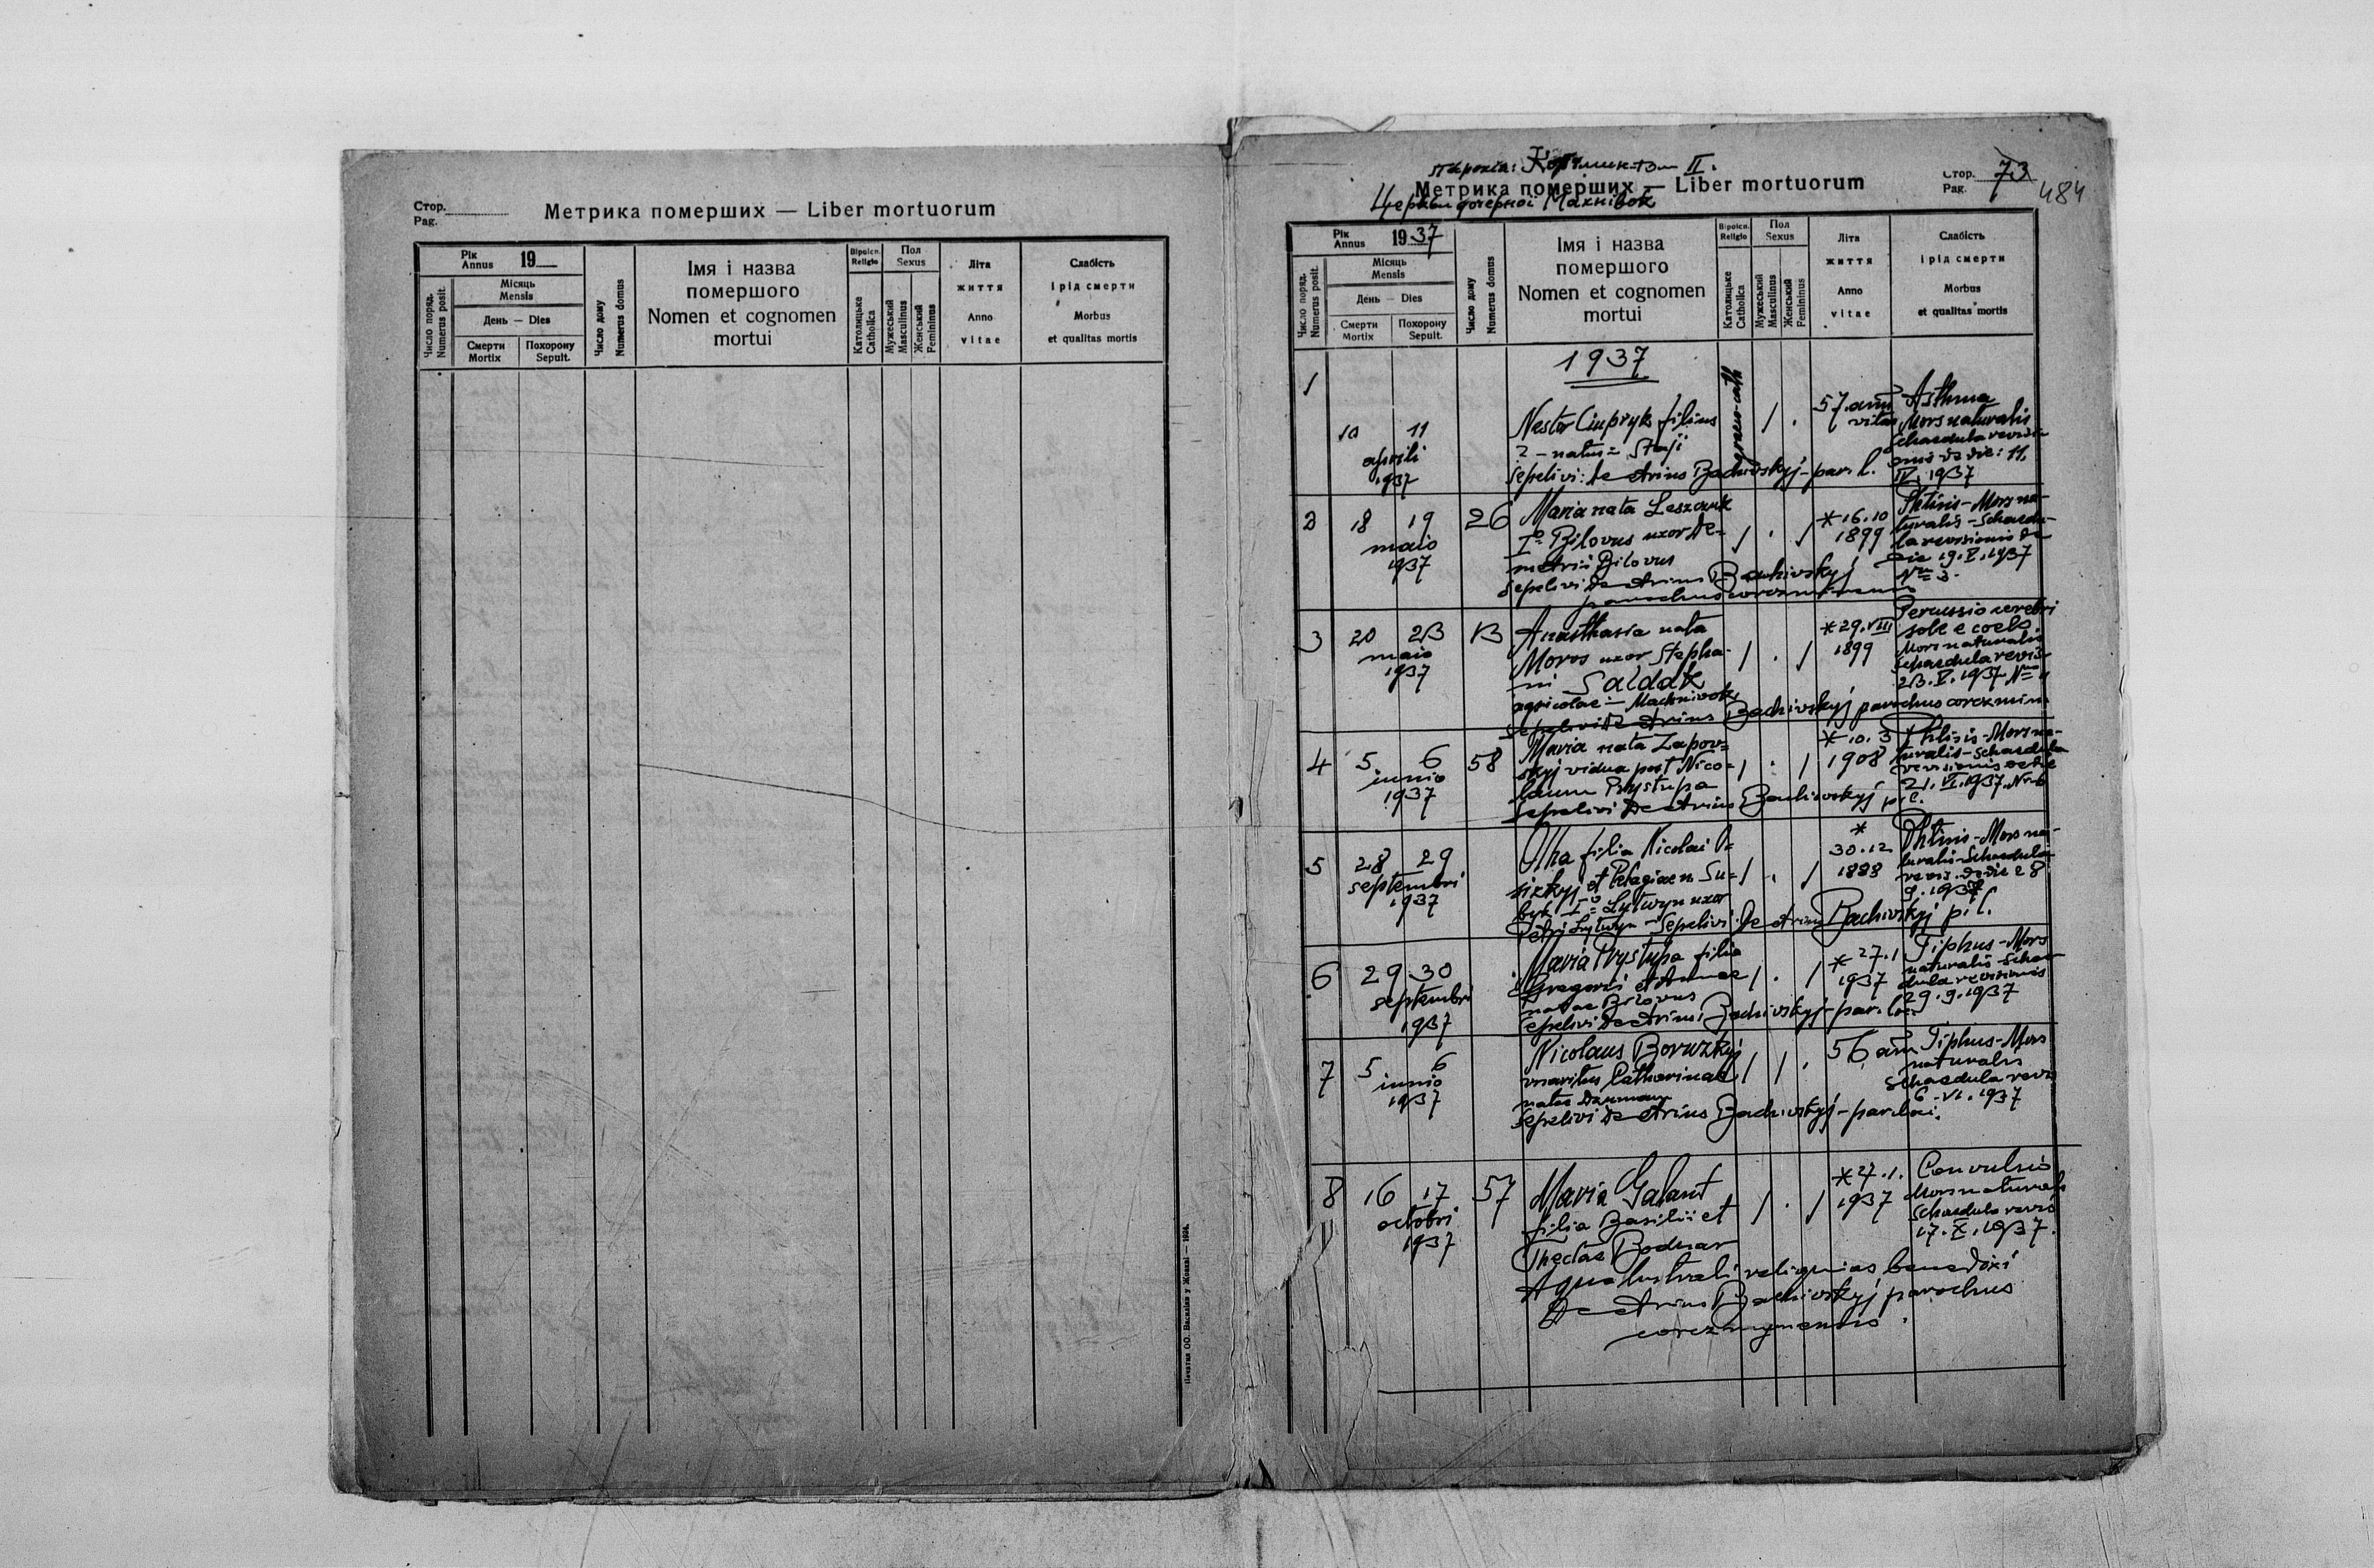 Стор.
Pag.
Метрика померших — Liber mortuorum
Рік
Annus 19
Число поряд.
Numerus posit.
Місяць
Mensis
День — Dies
Смерти
Mortix
Похорону
Sepult.
Число дому
Numerus domus
Імя і назва
помершого
Nomen et cognomen
mortui
Віроісп.
Religio
Католицьке
Catholica
Пол
Sexus
Мужеський
Masculinus
Женський
Femininus
Літа
життя
Anno
vitae
Слабість
і рід смерти
Morbus
et qualitas mortis
Печатня ОО. Василіян у Жовкві — 1934.
II.
Метрика померших — Liber mortuorum
Церкви дочерної Махнівок
Стор.
Pag. 73
484
Рік
Annus 1937
Число поряд.
Numerus posit.
Місяць
Mensis
День — Dies
Смерти
Mortix
Похорону
Sepult.
Число дому
Numerus domus
Імя і назва
помершого
Nomen et cognomen
mortui
Віроісп.
Religio
Католицьке
Catholica
Пол
Sexus
Мужеський
Masculinus
Женський
Femininus
Літа
життя
Anno
vitae
Слабість
і рід смерти
Morbus
et qualitas mortis
1937
1
10 11
aprili
1937
Nestor filius
? - natus
Sepelivi: Demetrius Bachivskyj - par. l.
graeco-cath
57 ann
vitae
Asthma
Mors naturalis
Schaedula revisi-
onis de die: 11.
IV. 1937
2 18 19 26
maio
1937
Maria nata Leszczuk
Iº Bilovus uxor De-
metrii Bilovus
Sepelivi Demetrius Bachivskyj
parochus
* 16.10
1899
Phtisis - Mors na-
turalis - Schaedu-
la revisionis de
die 19. V. 1937
Nro 3.
3 20 23 13
maio
1937
Anasthasia nata
Moros uxor Stepha-
ni Saldak
agricolae - Machnivok
Sepelivi Demetrius Bachivskyj parochus
* 29. VIII
1899
Percussio cerebri
sole e coelo
Mors naturalis
Schaedula revis
23. V. 1937 Nro
4 5 6 58
iunio
1937
Maria nata Zapor-
skyj vidua post Nico-
laum Prystupa
Sepelivi Demetrius Bachivskyj p. l.
* 10. 3
1908
Phtisis - Mors na-
turalis - Schaedula
revisionis de die
21. VI. 1937 Nro 6
5 28 29
septembri
1937
Olha filia Nicolai
et Pelagiae n. Su-
Iº Lytwyn uxor
Petri Lytwyn - Sepelivi Demetrius Bachivskyj p. l.
*
30. 12
1888
Phtisis - Mors na-
turalis - Schaedula
revis. de die 28
9. 1937
6 29 30
septembri
1937
Maria Prystupa filia
Gregorii et Annae
natae Bilovus
Sepelivi Demetrius Bachivskyj - par. loci
* 27. 1
1937
Tiphus - Mors
naturalis Schae-
dula revisionis
29. 9. 1937
7 5 6
iunio
1937
Nicolaus
maritus Catharinae
natae
Sepelivi Demetrius Bachivskyj - par. loci.
56 ann
Tiphus - Mors
naturalis
Schaedula revis
6 - VI. 1937
8 16 17 57
octobri
1937
Maria Galant
filia Basilii et
Theclae Bodnar
Aqua lustrali reliquias benedixi
Demetrius Bachivskyj parochus
* 27. 1.
1937
Convulsio
Mors naturalis
Schaedula revis
17. X. 1937.